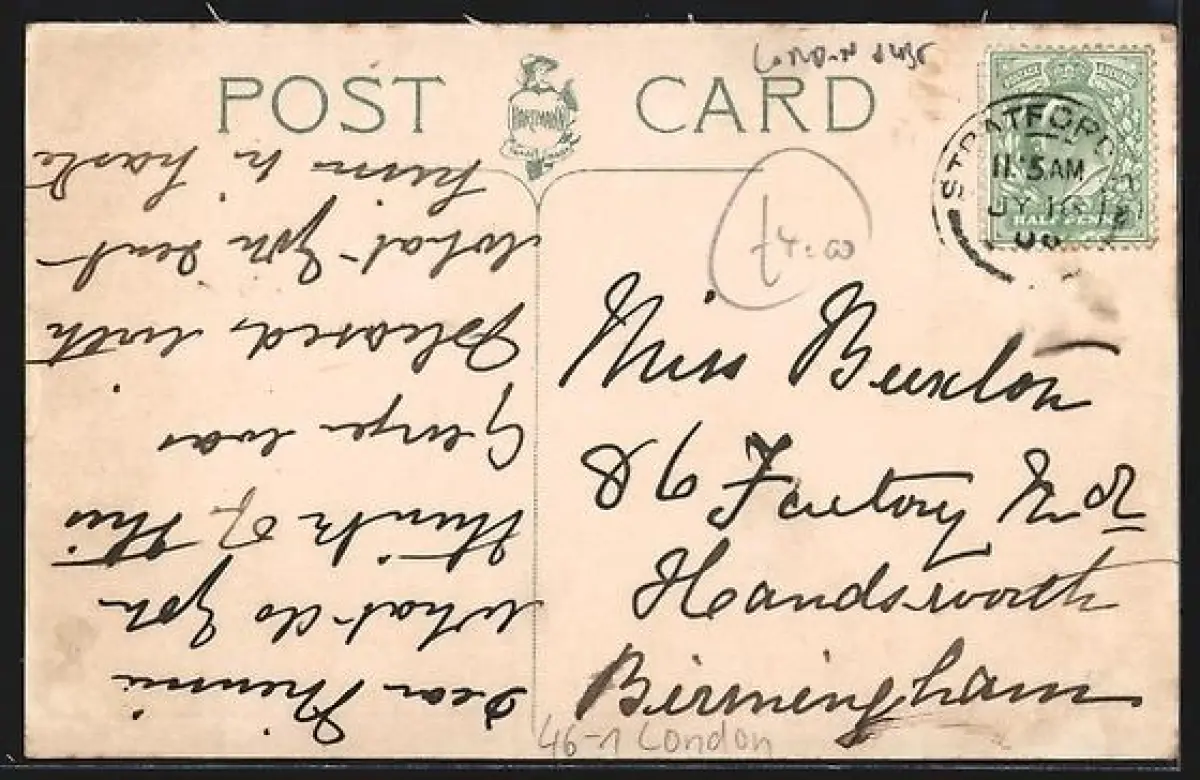 POST CARD
HARTMANN
LONDON
£4.00
STRATFORD
11.5AM
JY 16
06
HALF PENNY
Miss Buxton
86 Factory Rd
Handsworth
Birmingham
46-1 London
Dear Minnie
What do you
think of this
George was
pleased with
what you sent
him in haste